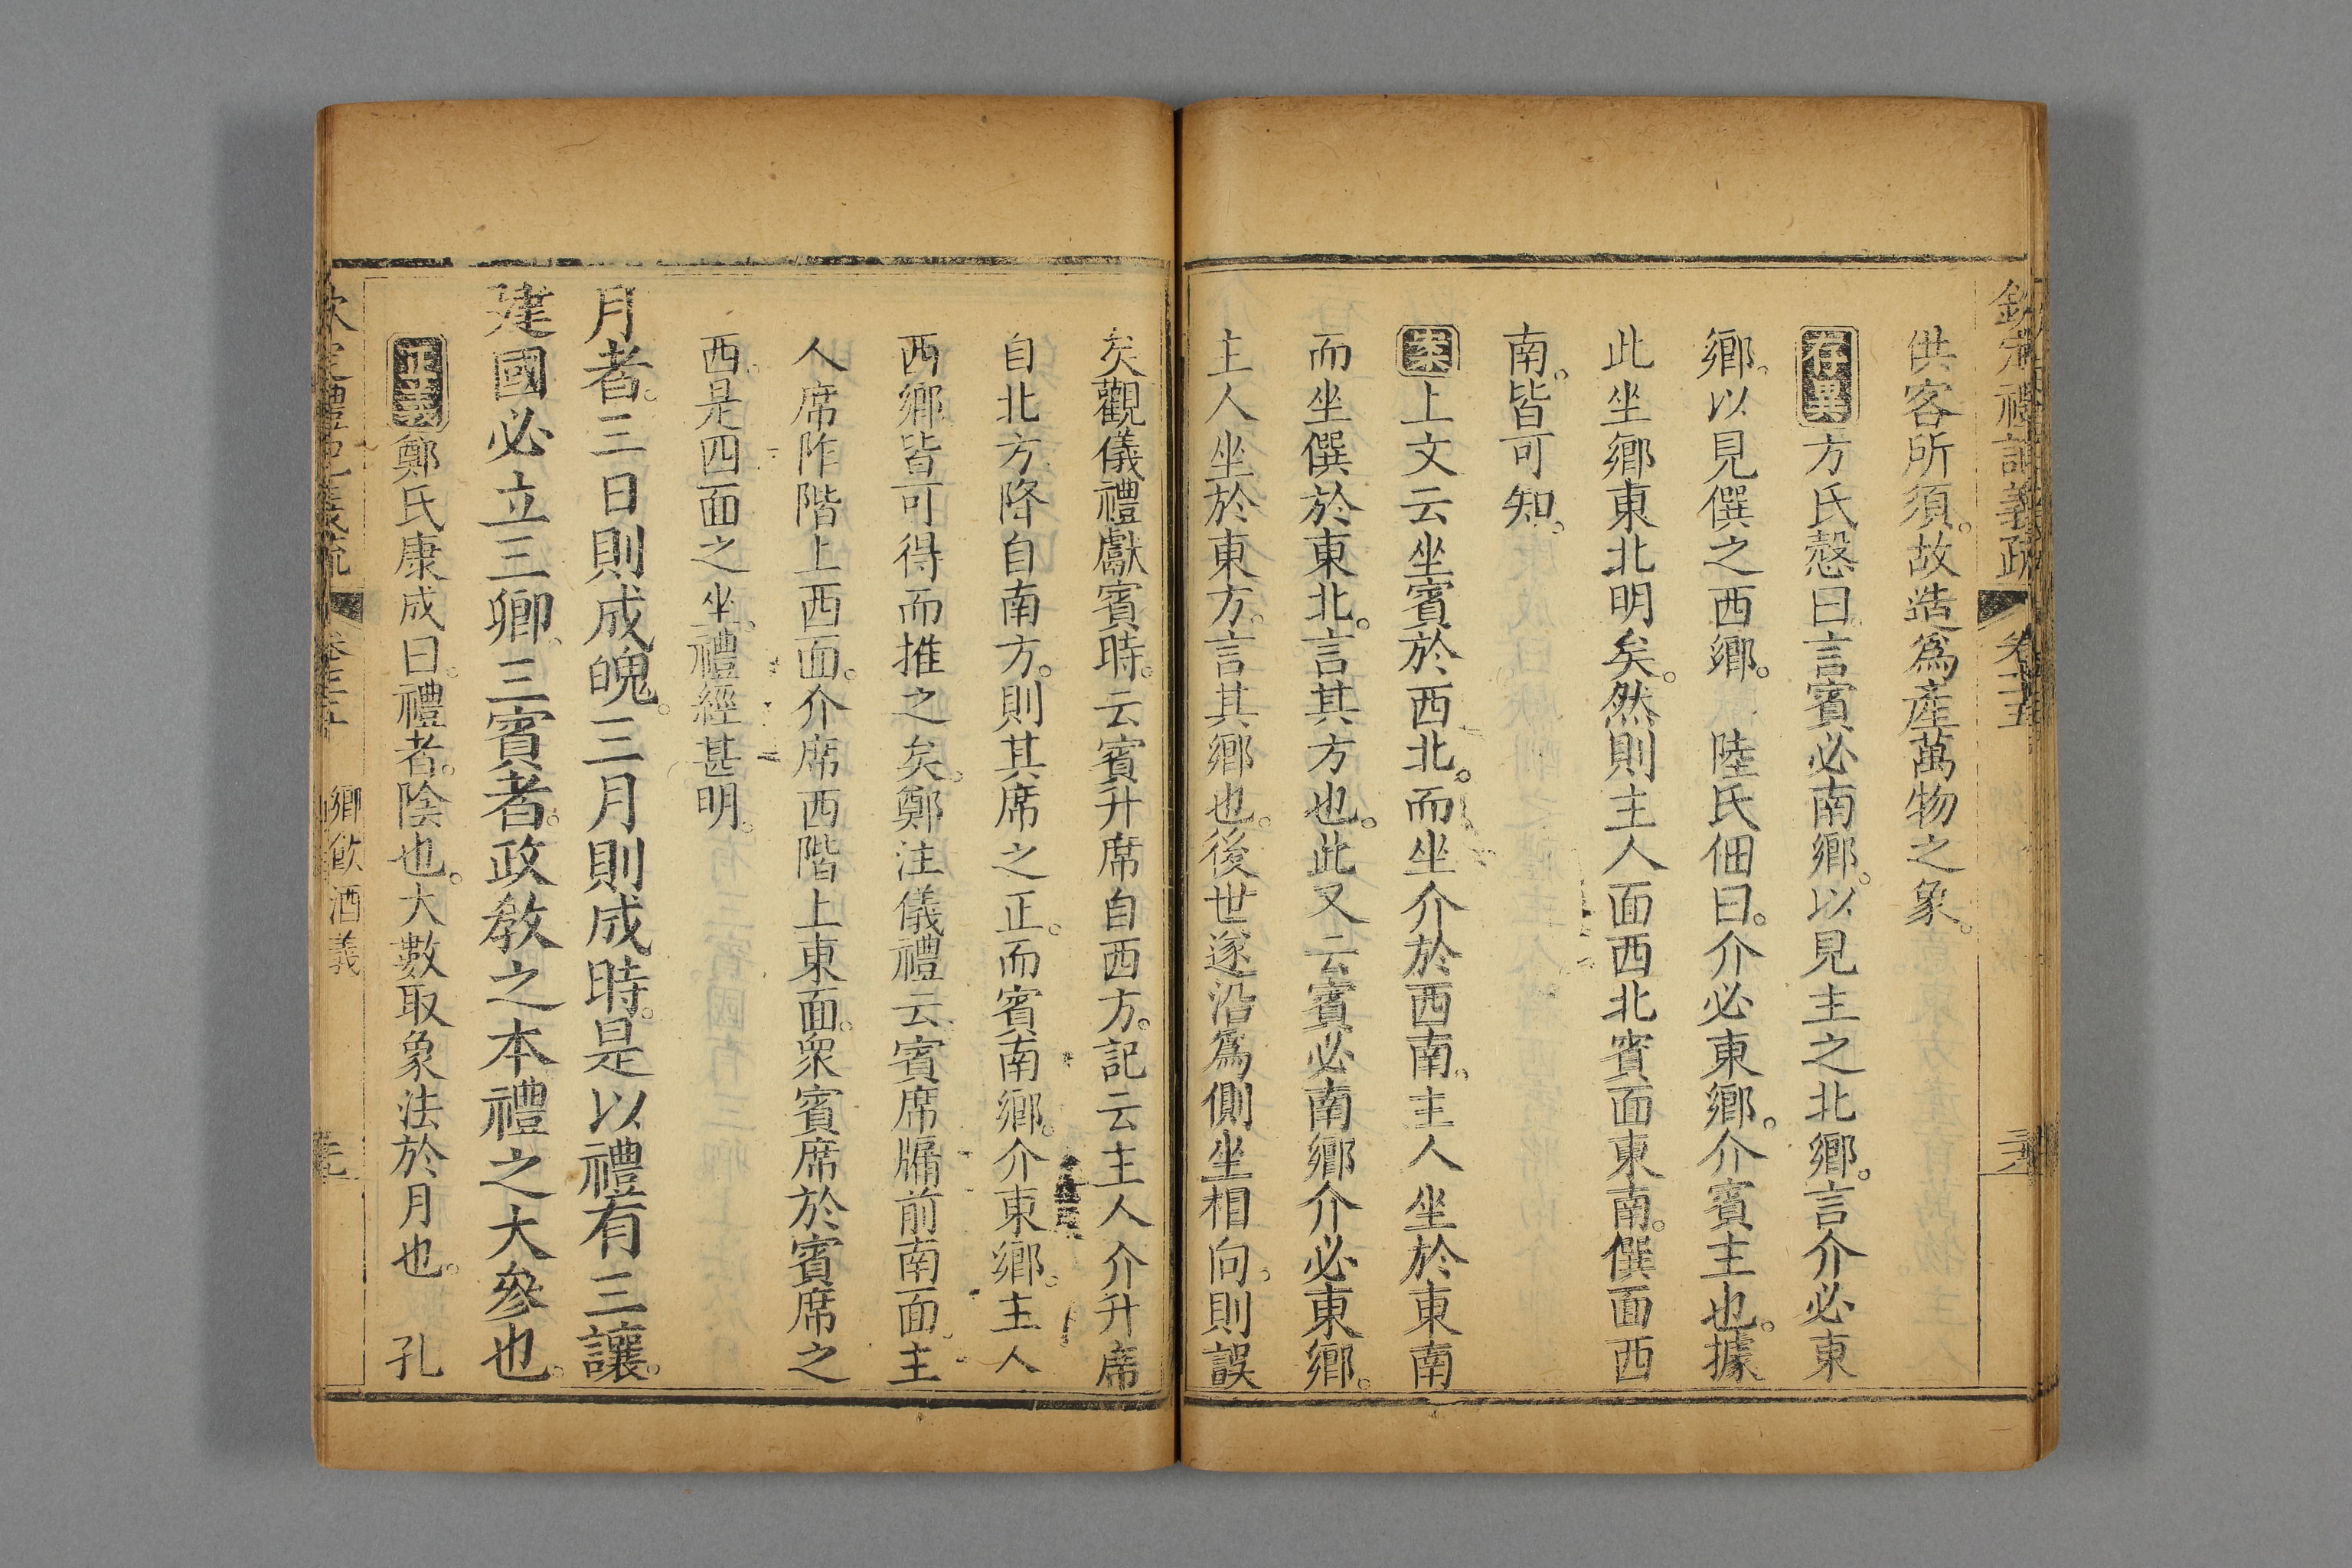 欽定禮記義疏 卷 
供客所須。故造爲產萬物之象。
存異 方氏慤曰。言賓必南鄉。以見主之北鄉。言介必東
鄉。以見僎之西鄉。 陸氏佃曰。介必東鄉。介賓主也。據
此坐鄉東北明矣。然則主人面西北賓面東南。僎面西
南。皆可知。
案 上文云坐賓於西北。而坐介於西南。主人坐於東南
而坐僎於東北。言其方也。此又云賓必南鄉介必東鄉。
主人坐於東方。言其鄉也。後世遂沿爲側坐相向。則誤
矣觀儀禮獻賓時。云賓升席自西方。記云主人介升席
自北方降自南方。則其席之正。而賓南鄉。介東鄉。主人
西鄉皆可得而推之矣。鄭注儀禮云。賓席牖前南面。主
人席阼階上西面。介席西階上東面。衆賓席於賓席之
西。是四面之坐。禮經甚明。
月者。三日則成魄。三月則成時。是以禮有三讓。
建國必立三卿。三賓者。政教之本禮之大參也。
正義 鄭氏康成曰。禮者。陰也。大數取象法於月也。 孔
欽定禮記義疏 卷 鄉飲酒義